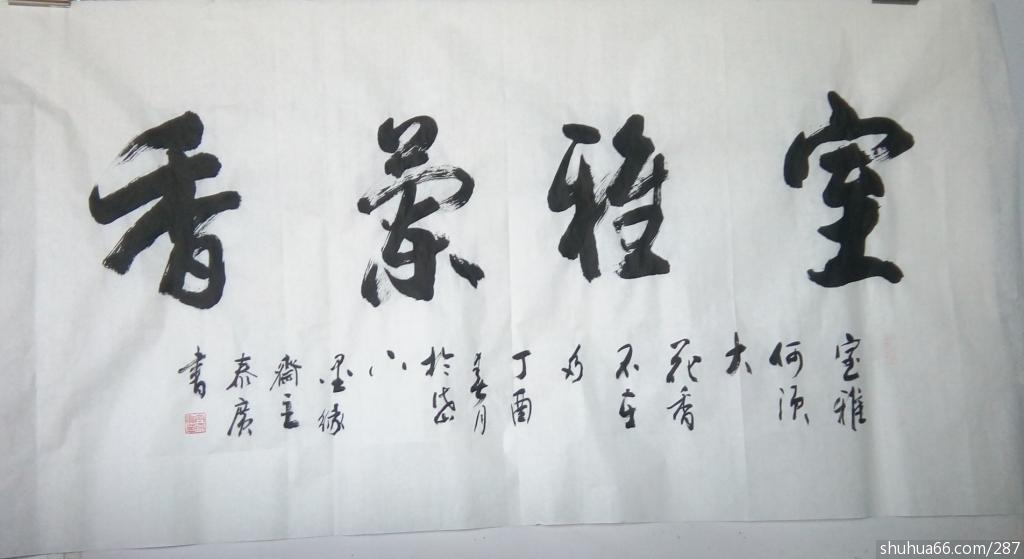 室雅兰香
室雅
何须
大
花香
不在
多
丁酉
春月
於岱
下
墨缘
斋主
泰广
书
shuhua66.com/287